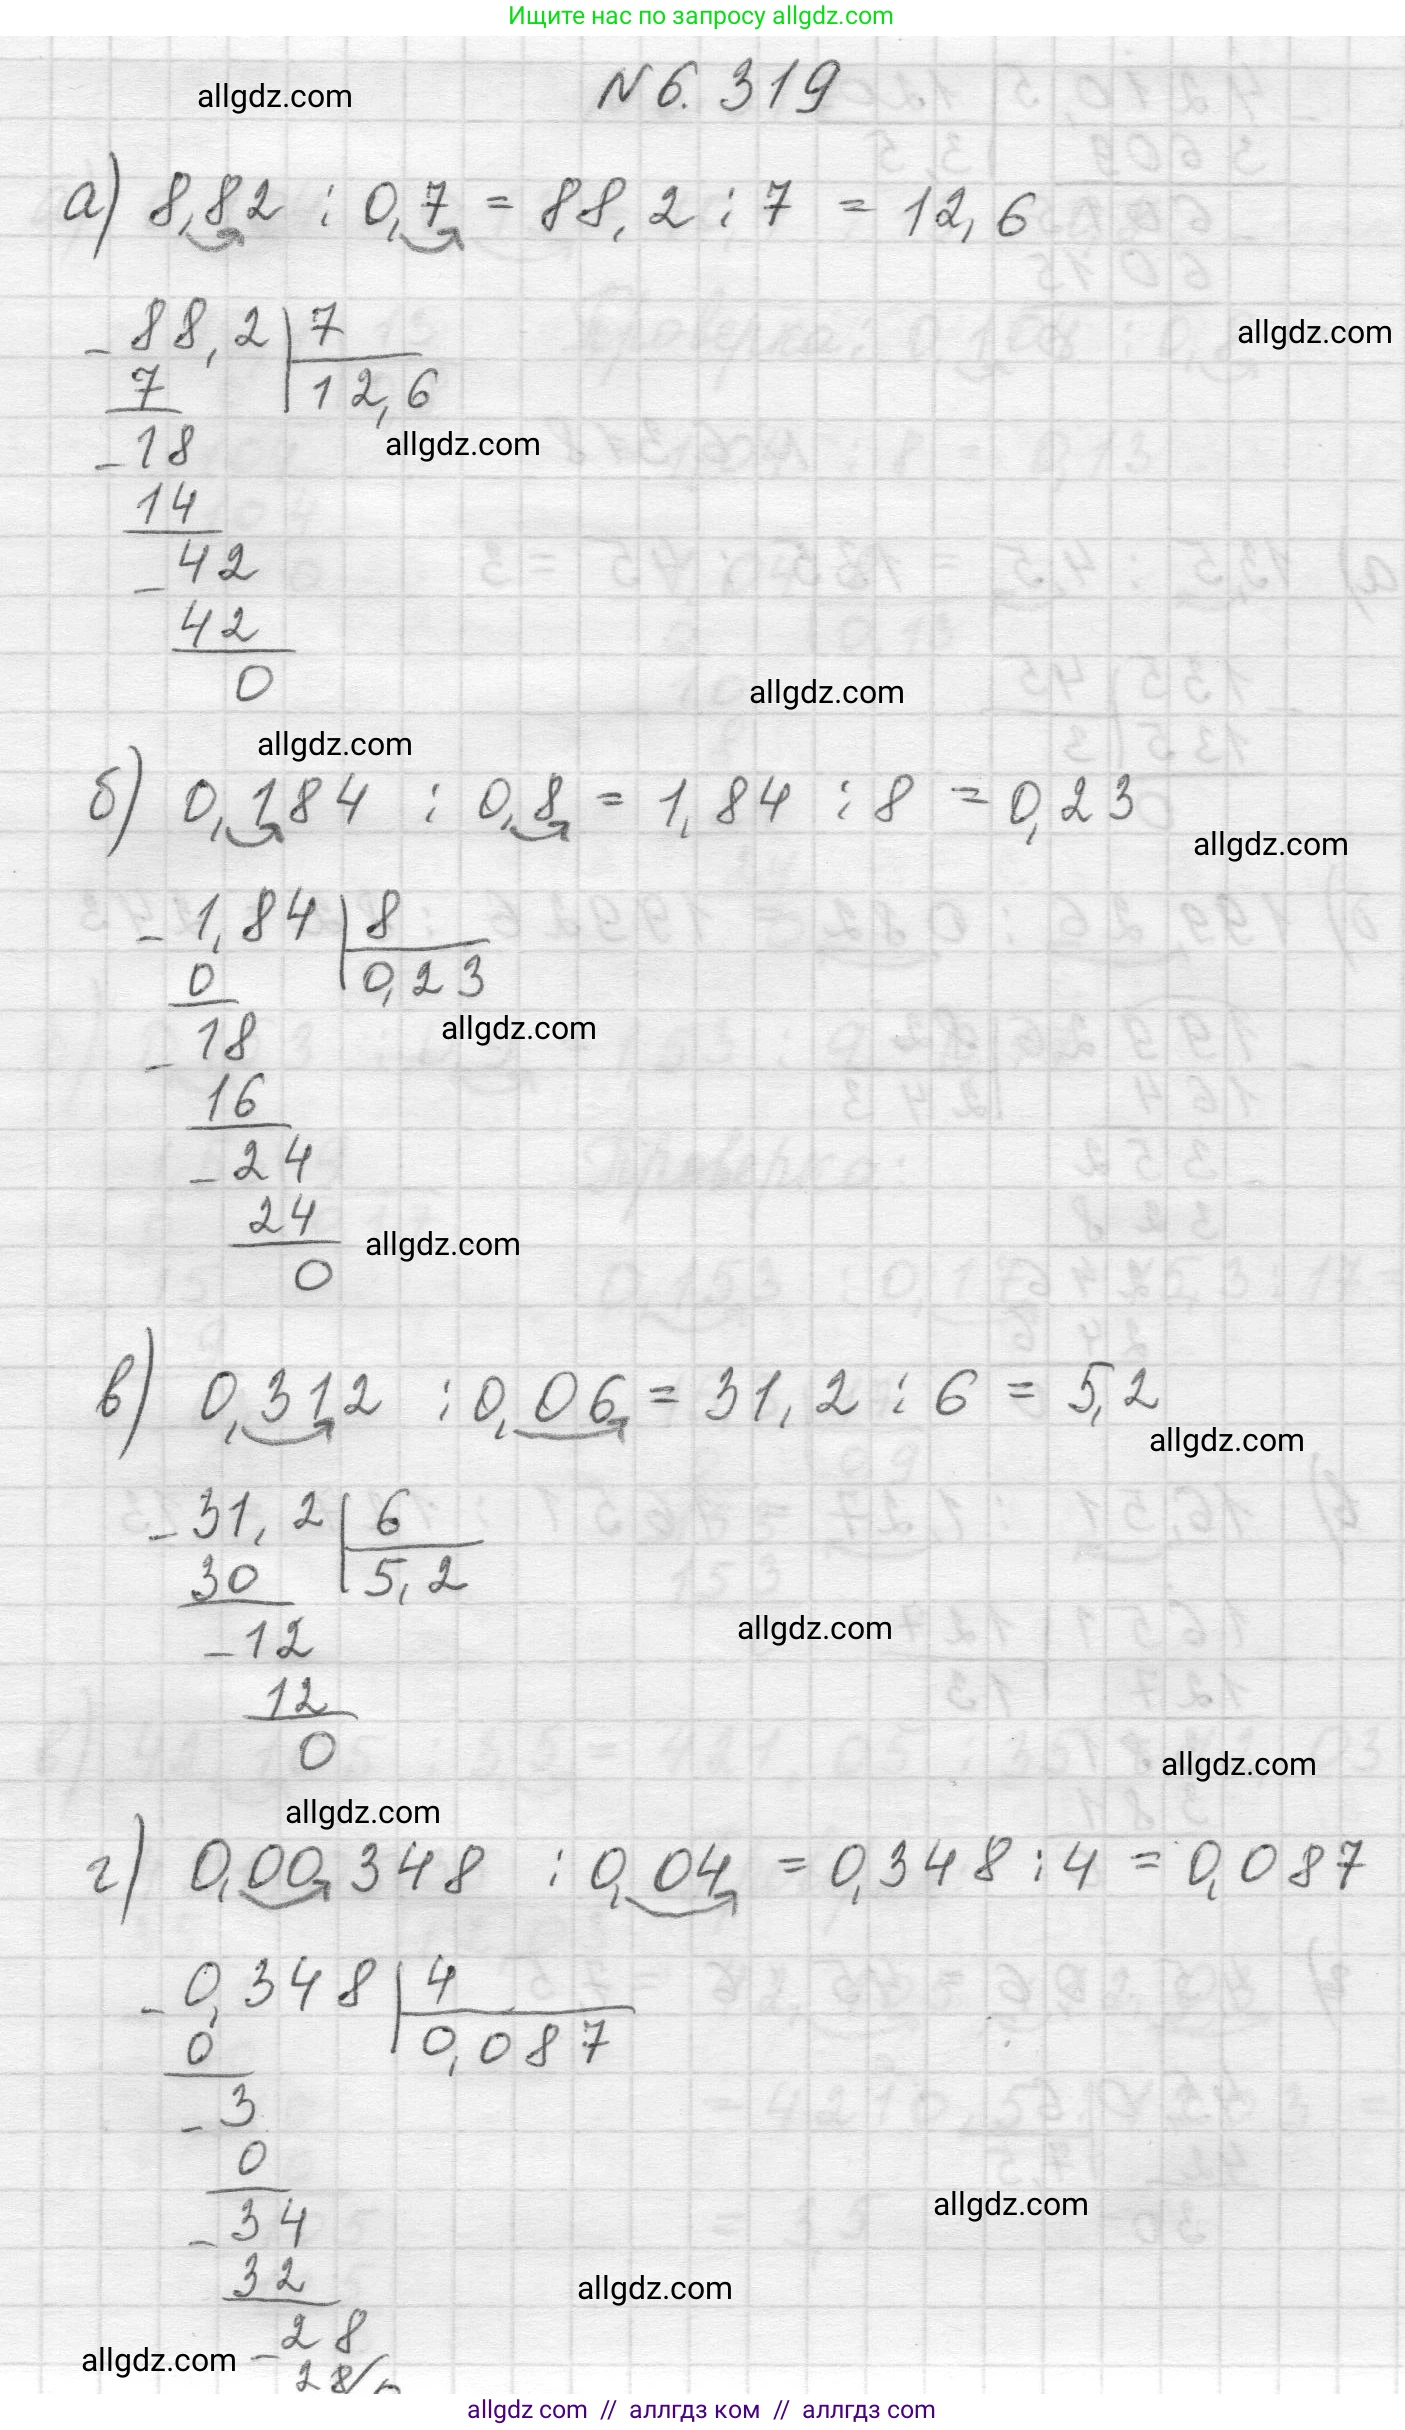 Ищите нас по запросу allgdz.com
allgdz.com
N 6. 319
а) 8,82 : 0,7 = 88,2 : 7 = 12,6
- 88,2 7
allgdz.com
7 12,6
- 18
allgdz.com
14
- 42
42
0
allgdz.com
allgdz.com
б) 0,184 : 0,8 = 1,84 : 8 = 0,23
allgdz.com
- 1,84 8
0 0,23
- 18
allgdz.com
16
- 24
24
allgdz.com
0
в) 0,312 : 0,06 = 31,2 : 6 = 5,2
allgdz.com
- 31,2 6
30 5,2
- 12
allgdz.com
12
0
allgdz.com
allgdz.com
г) 0,00348 : 0,04 = 0,348 : 4 = 0,087
- 0,348 4
0 0,087
- 3
0
- 34
allgdz.com
32
allgdz.com
- 28
allgdz.com
28
allgdz com // аллгдз ком // аллгдз.com